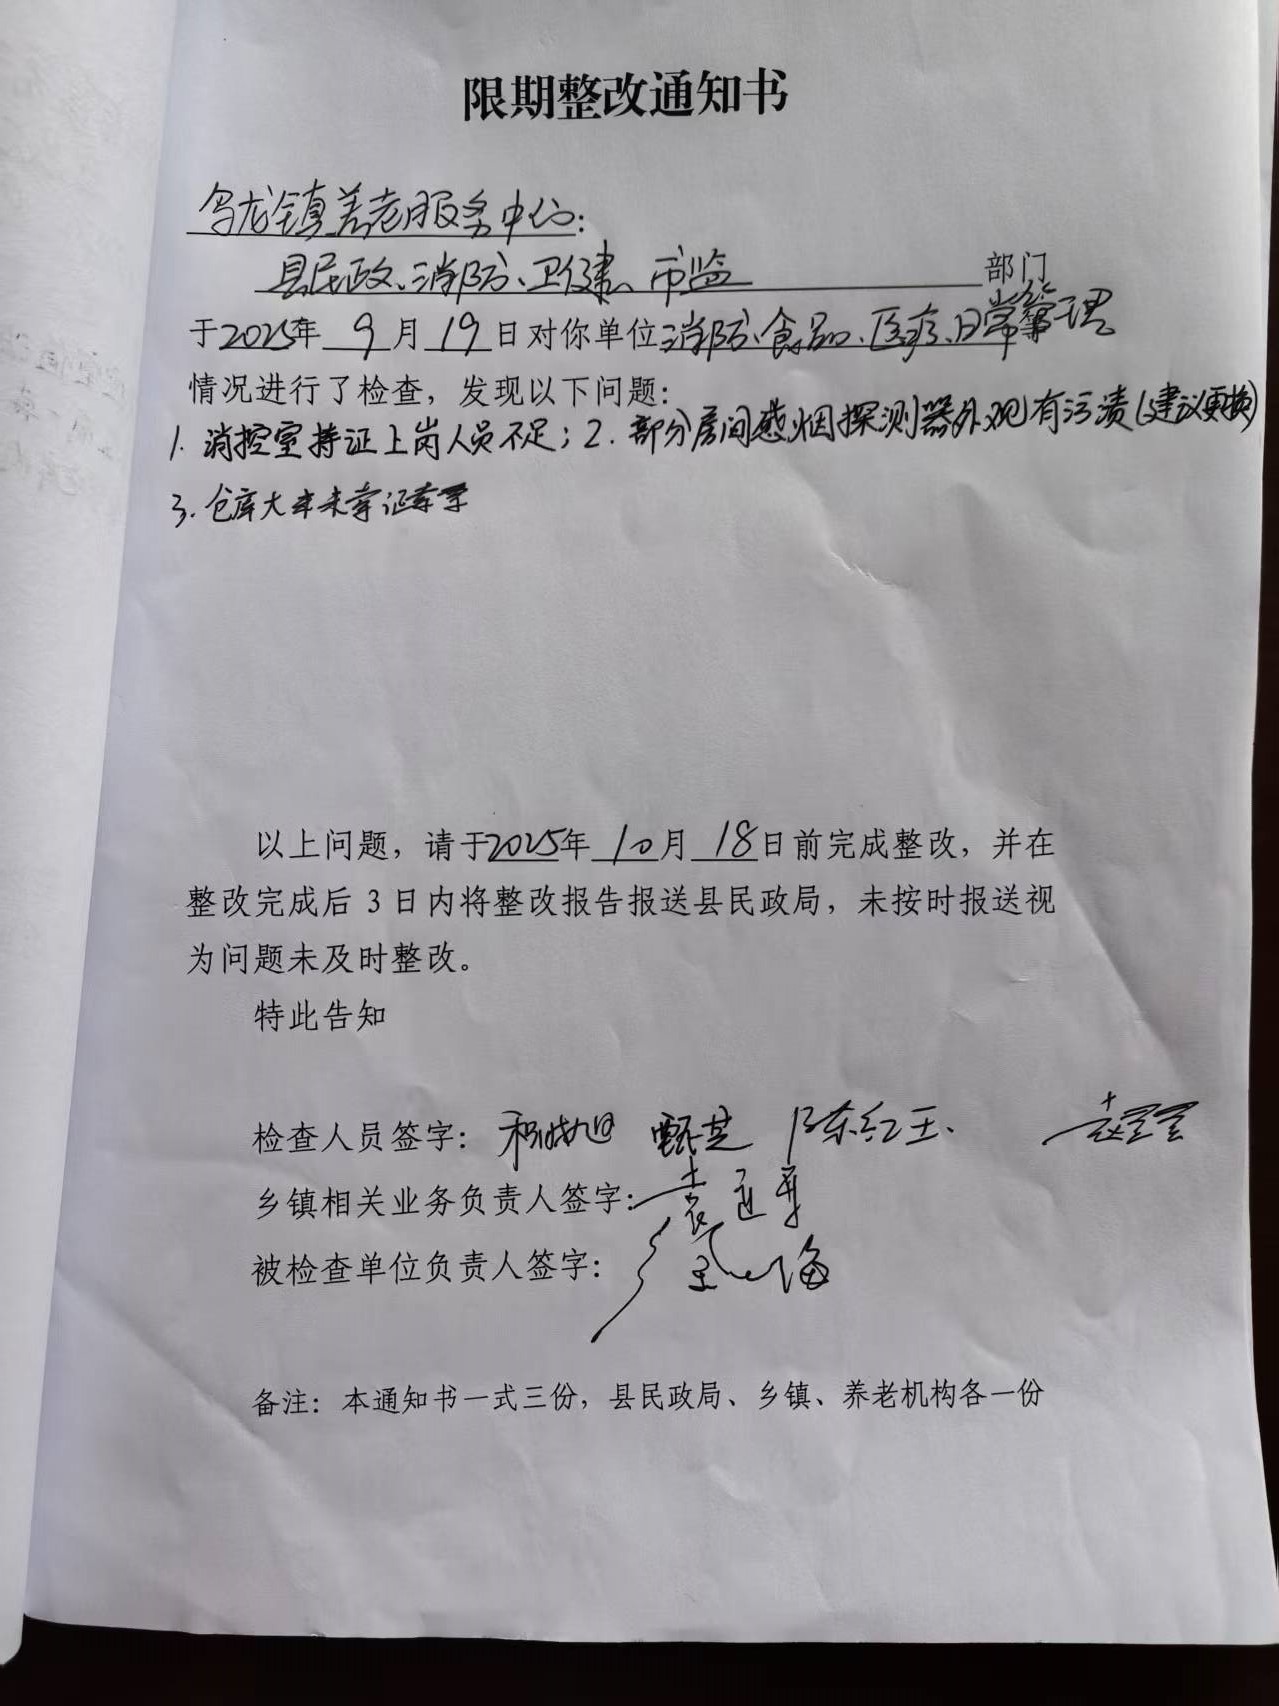 限期整改通知书
乌龙镇养老服务中心:
县民政、消防、卫健、市监 部门
于2025年 9 月 19 日对你单位消防、食品、医疗、日常管理
情况进行了检查，发现以下问题：
1. 消控室持证上岗人员不足；2. 部分房间感烟探测器外观有污渍(建议更换)
3. 仓库大米未索证索票
以上问题，请于2025年 10 月 18 日前完成整改，并在
整改完成后 3 日内将整改报告报送县民政局，未按时报送视
为问题未及时整改。
特此告知
检查人员签字： 陈红玉
乡镇相关业务负责人签字：
被检查单位负责人签字：
备注：本通知书一式三份，县民政局、乡镇、养老机构各一份